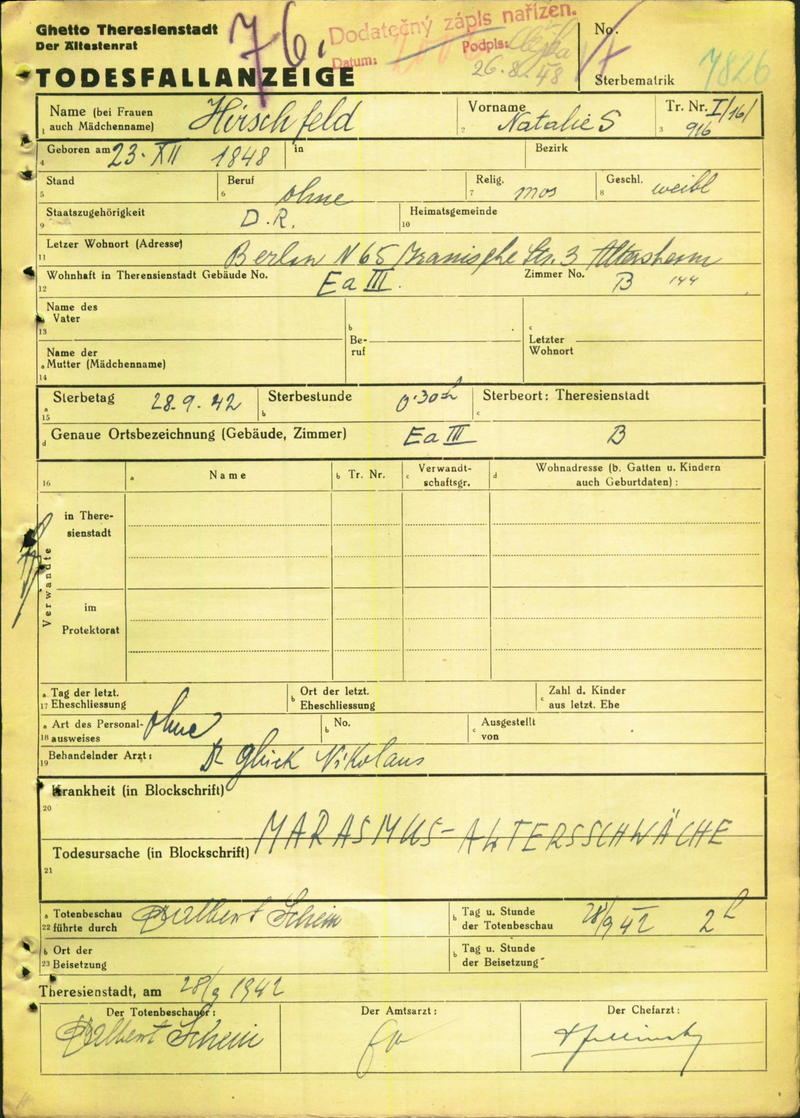 Ghetto Theresienstadt
Der Ältestenrat
TODESFALLANZEIGE
76.
Dodatečný zápis nařízen.
Datum: Podpis:
26.8.48
No.
17
Sterbematrik 7826
1 Name (bei Frauen auch Mädchenname) Hirschfeld
2 Vorname Natalie S
3 Tr. Nr. I/16/ 916
4 Geboren am 23. XII 1848 in
Bezirk
5 Stand
6 Beruf ohne
7 Relig. mos
8 Geschl. weibl
9 Staatszugehörigkeit D.R.
10 Heimatsgemeinde
11 Letzer Wohnort (Adresse) Berlin N 65 Iranische Str. 3 Altersheim
12 Wohnhaft in Therensienstadt Gebäude No. Ea III. Zimmer No. B 144
13 Name des Vater
14 Name der Mutter (Mädchenname)
b Beruf
c Letzter Wohnort
a 15 Sterbetag 28.9.42
b Sterbestunde 0.30 h
c Sterbeort: Theresienstadt
d Genaue Ortsbezeichnung (Gebäude, Zimmer) Ea III B
16
a Name
b Tr. Nr.
c Verwandtschaftsgr.
d Wohnadresse (b. Gatten u. Kindern auch Geburtdaten):
Verwandte
in Theresienstadt
im Protektorat
a 17 Tag der letzt. Eheschliessung
b Ort der letzt. Eheschliessung
c Zahl d. Kinder aus letzt. Ehe
a 18 Art des Personalausweises ohne
b No.
c Ausgestellt von
19 Behandelnder Arzt: Dr Glück Nikolaus
20 Krankheit (in Blockschrift)
MARASMUS - ALTERSSCHWÄCHE
21 Todesursache (in Blockschrift)
a 22 Totenbeschau führte durch Dr Albert Schein
b Tag u. Stunde der Totenbeschau 28/9 42 2 h
b 23 Ort der Beisetzung
b Tag u. Stunde der Beisetzung
Theresienstadt, am 28/9 1942
Der Totenbeschauer: Dr Albert Schein
Der Amtsarzt:
Der Chefarzt: